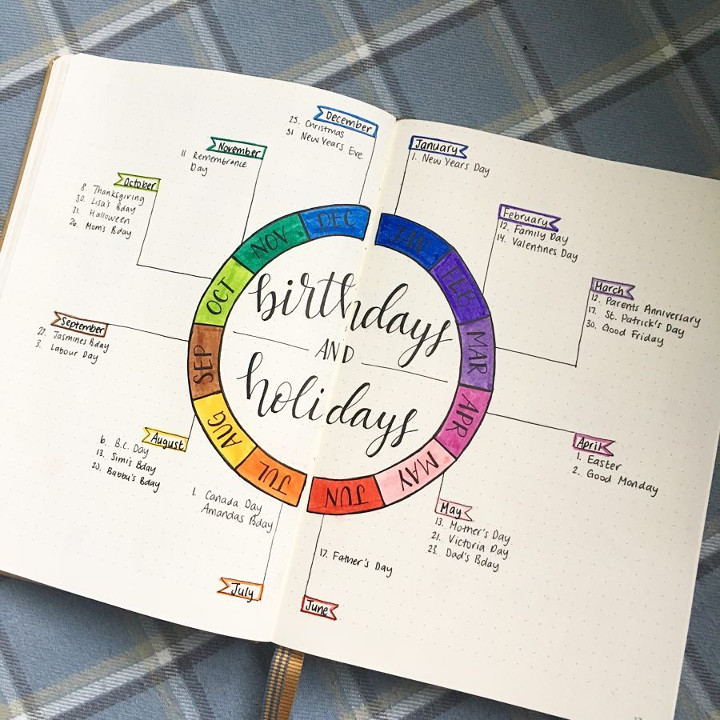 birthdays
AND
holidays
JAN
FEB
MAR
APR
MAY
JUN
JUL
AUG
SEP
OCT
NOV
DEC
January
1. New Years Day
February
12. Family Day
14. Valentines Day
March
12. Parents Anniversary
17. St. Patrick's Day
30. Good Friday
April
1. Easter
2. Good Monday
May
13. Mother's Day
21. Victoria Day
Dad's Bday
17. Father's Day
June
1. Canada Day
Amandas Bday
July
August
6. B.C. Day
13. Simi's Bday
20. Babbu's Bday
September
Jasmines Bday
3. Labour Day
October
8. Thanksgiving
Lisa's Bday
Halloween
26. Mom's Bday
November
11 Remembrance
Day
December
25. Christmas
31 New Years Eve